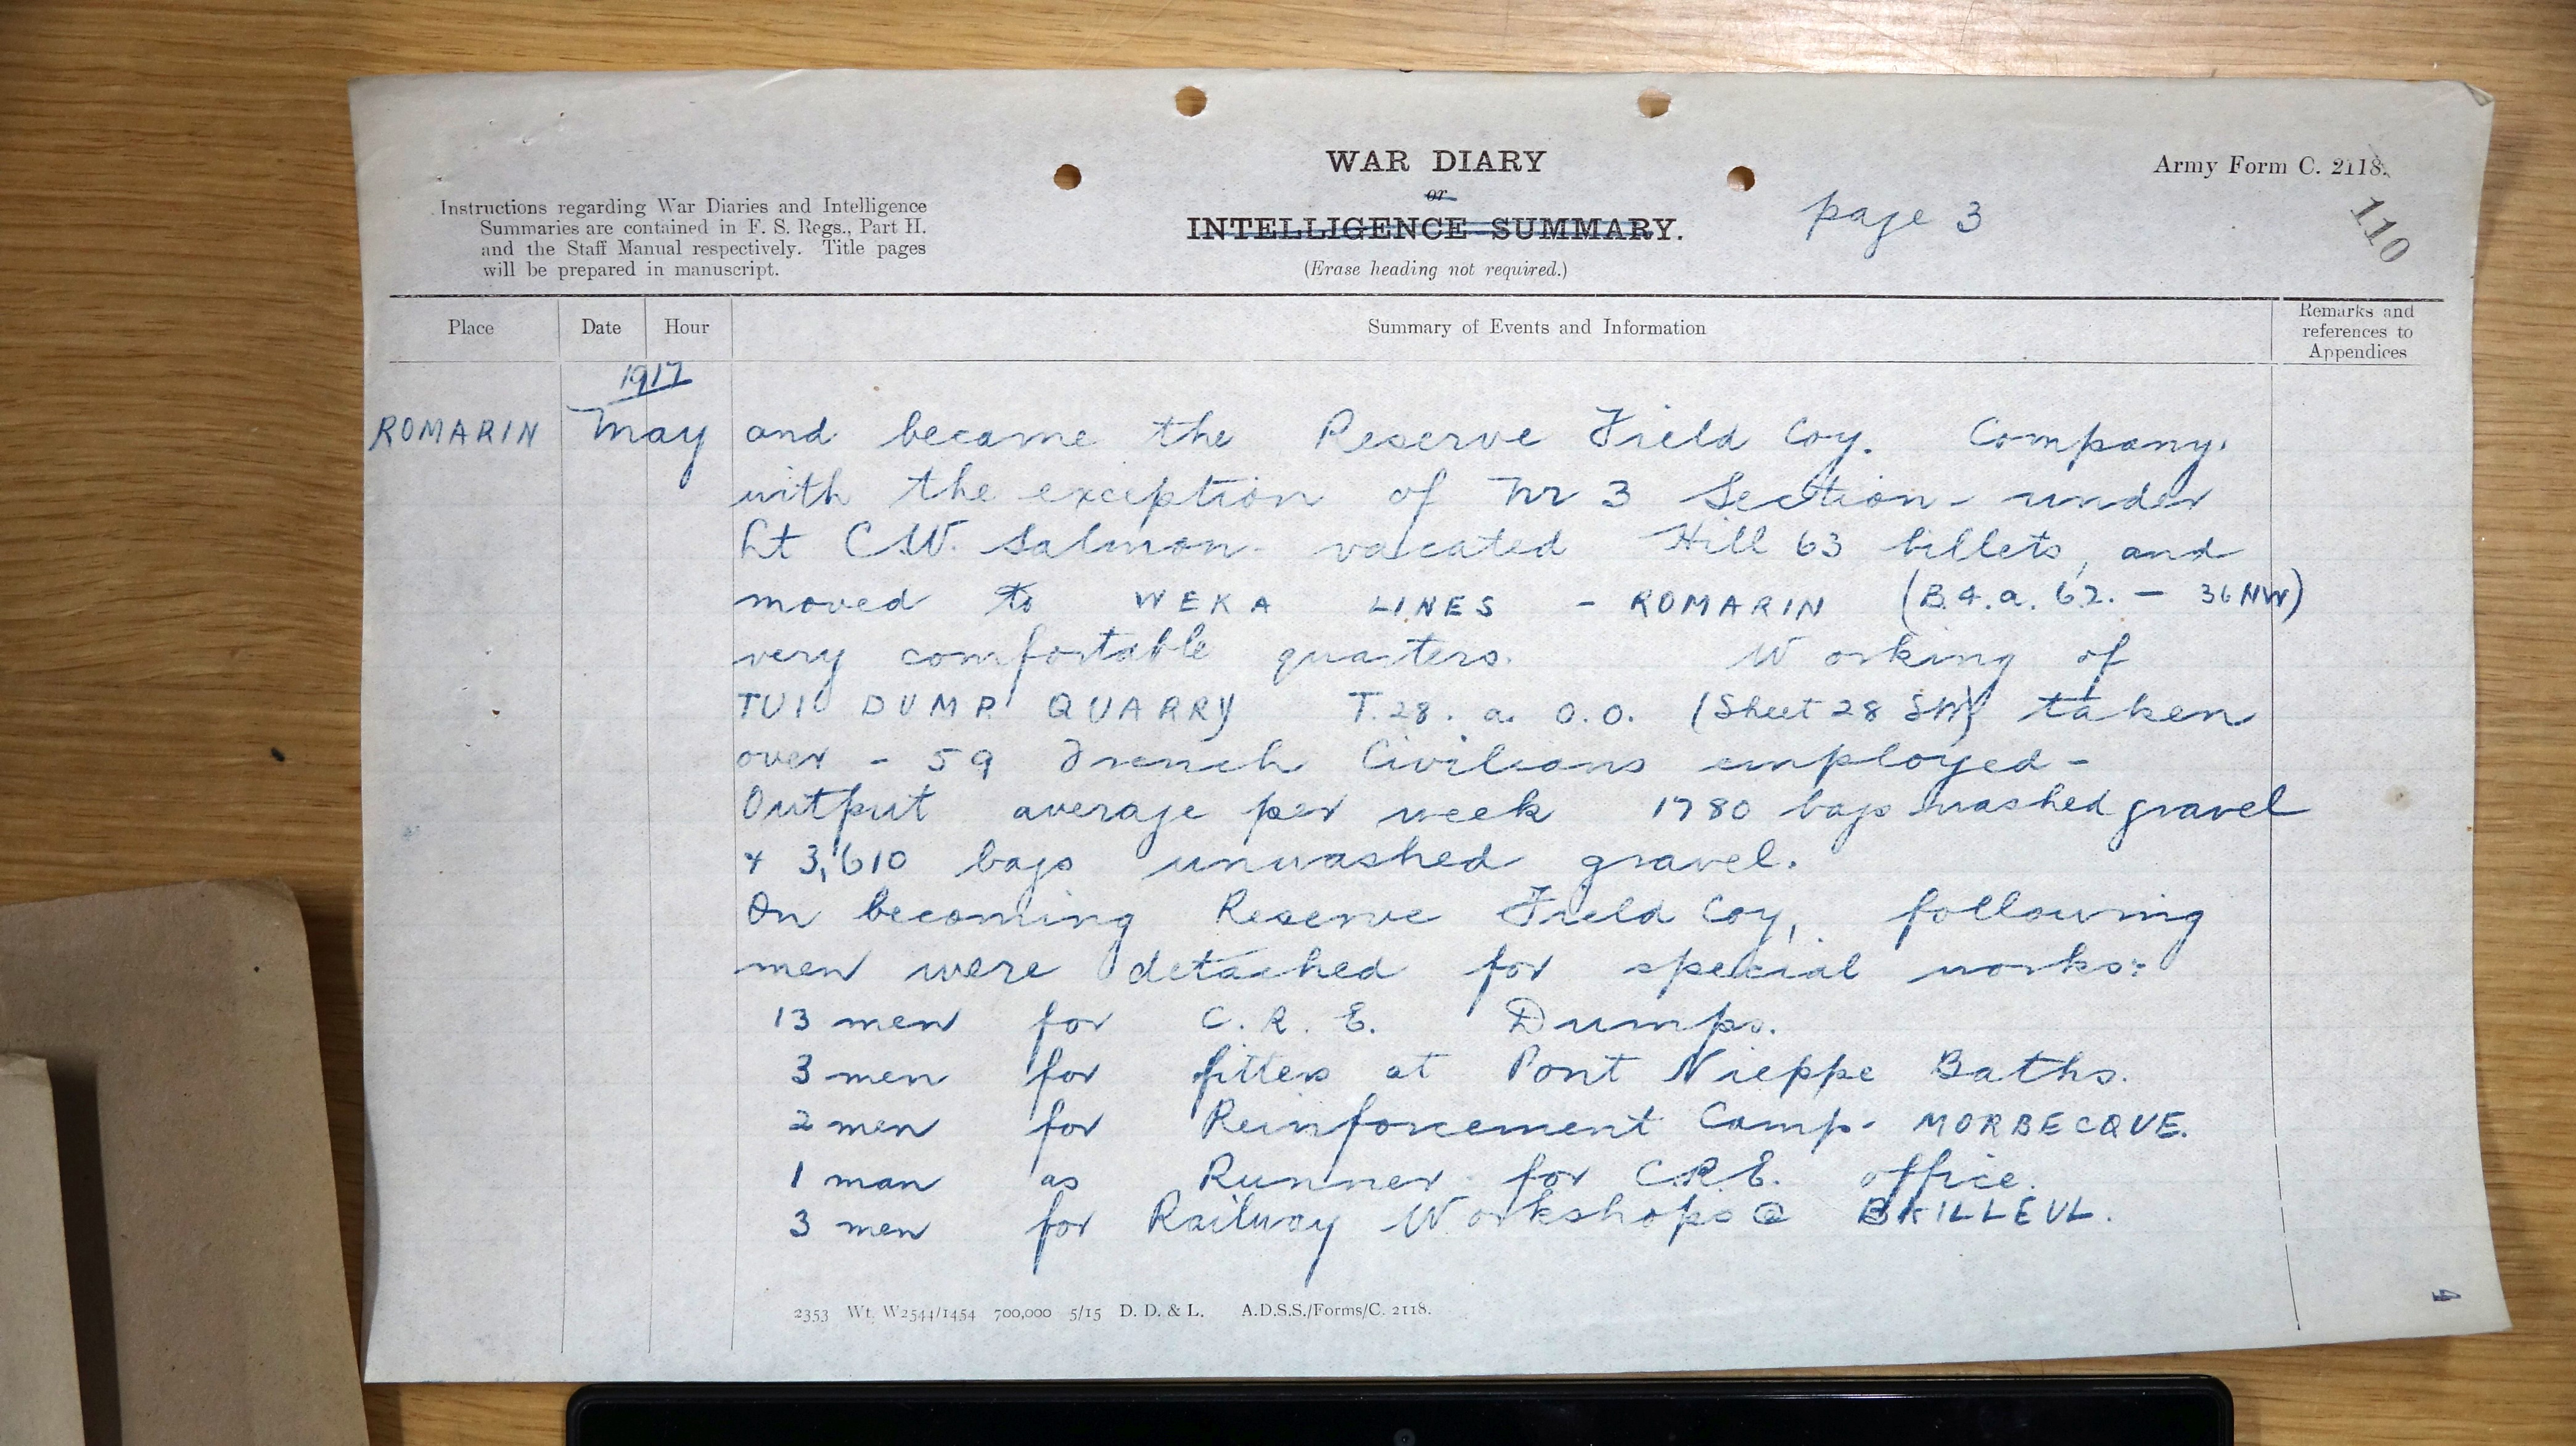 WAR DIARY
or
INTELLIGENCE SUMMARY.
(Erase heading not required.)
Army Form C. 2118.
page 3
110
Instructions regarding War Diaries and Intelligence
Summaries are contained in F. S. Regs., Part II.
and the Staff Manual respectively. Title pages
will be prepared in manuscript.
Place Date Hour Summary of Events and Information Remarks and
references to
Appendices
1917
ROMARIN May and became the Reserve Field Coy. Company.
with the exception of Nr 3 Section - under
Lt C.W. Salmon - vacated Hill 63 billets, and
moved to WEKA LINES - ROMARIN (B.4.a.6.2. - 36NW)
very comfortable quarters. Working of
TUI DUMP QUARRY T.28.a.0.0. (Sheet 28 SW) taken
over - 59 French Civilians employed -
Output average per week 1780 bags washed gravel
+ 3,610 bags unwashed gravel.
On becoming Reserve Field Coy, following
men were detached for special works:
13 men for C.R.E. Dumps.
3 men for fitters at Pont Nieppe Baths.
2 men for Reinforcement Camp - MORBECQUE.
1 man as Runner for C.R.E. office.
3 men for Railway Workshops @ BAILLEUL.
2353 Wt. W2544/1454 700,000 5/15 D. D. & L. A.D.S.S./Forms/C. 2118.